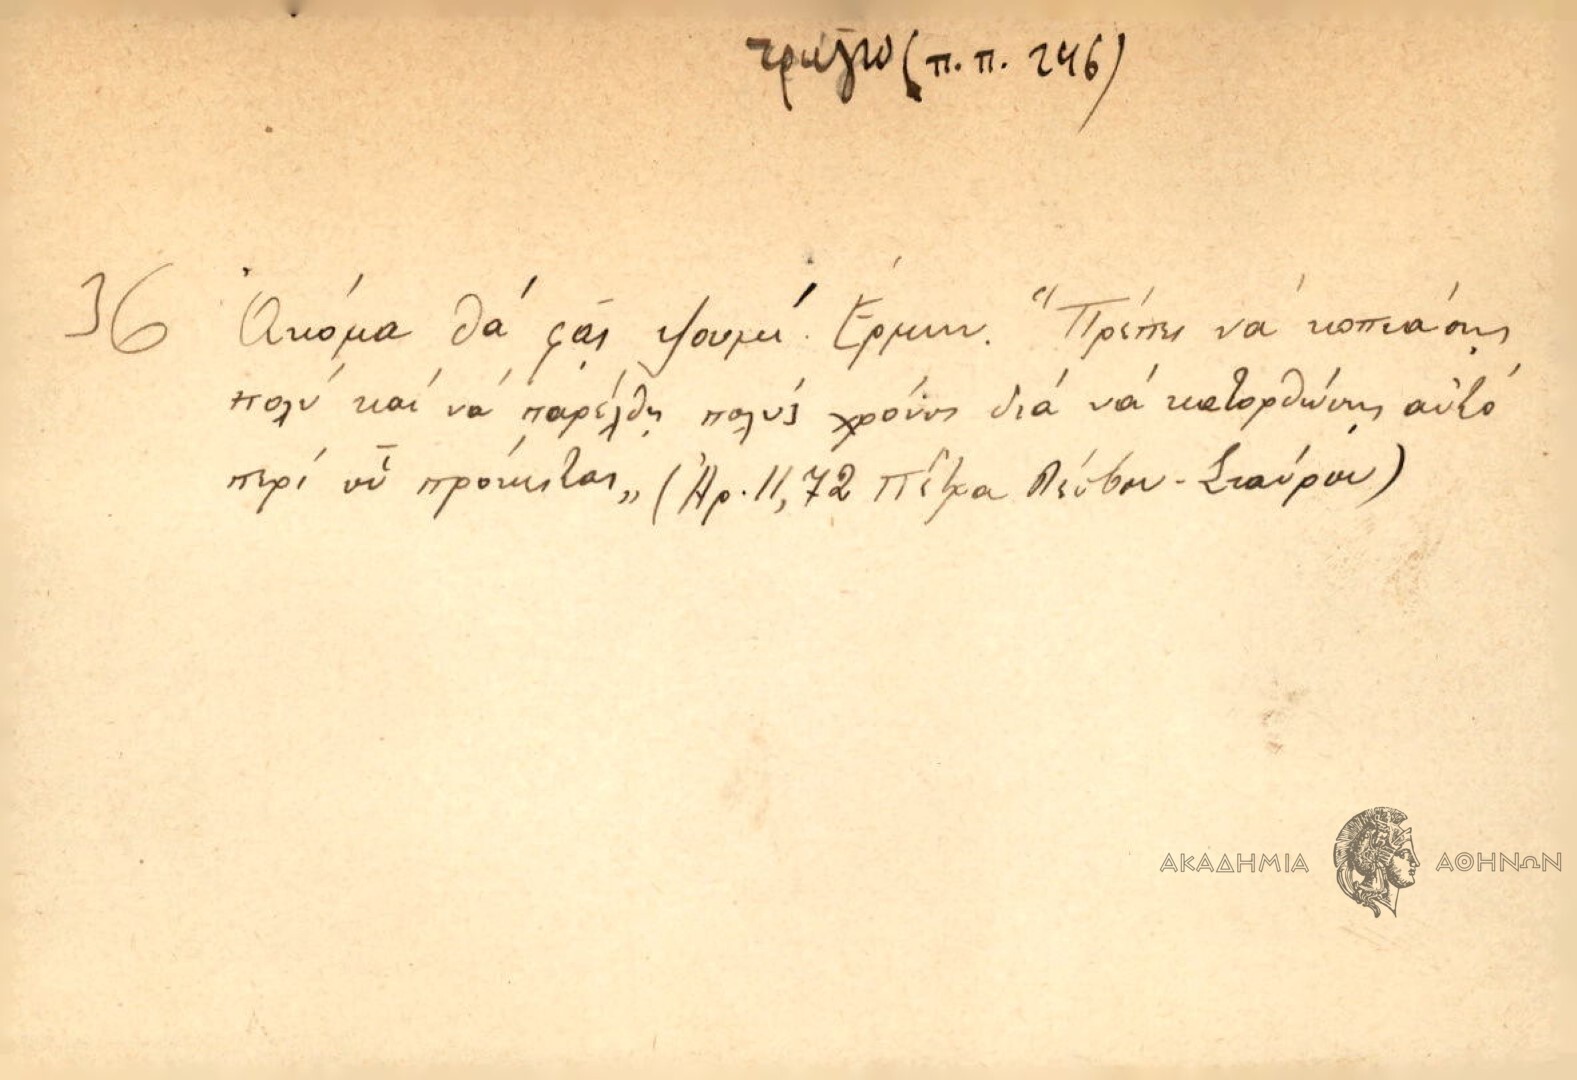 τρώγω (π.π. 246)
36 Ἀκόμα θά φᾶς ψουμί. Ἑρμην. "Πρέπει νά κοπιάσῃς
πολύ καί νά παρέλθῃ πολύς χρόνος διά νά κατορθώσῃς αὐτό
περί οὗ πρόκειται„ (Ἀρ. 11,72 Πέτρα Λέσβου - Σταύρου)
ΑΚΑΔΗΜΙΑ ΑΘΗΝΩΝ